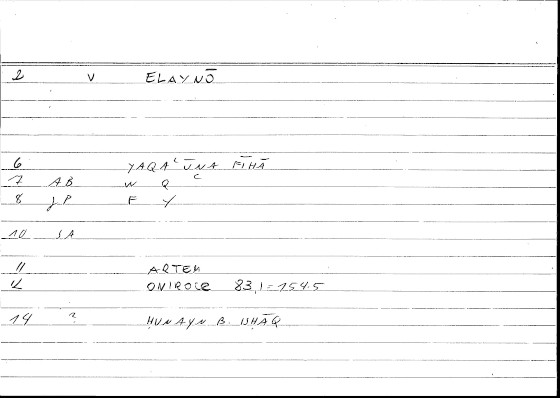 2 V ELAYNŌ
6 YAQAʿŪNA FĪHĀ
7 AB W Q ʿ
8 JP F Y
10 SA
11 ARTEM
12 ONIROCR 83,1 = 154.5
14 ? ḤUNAYN B. ISḤĀQ